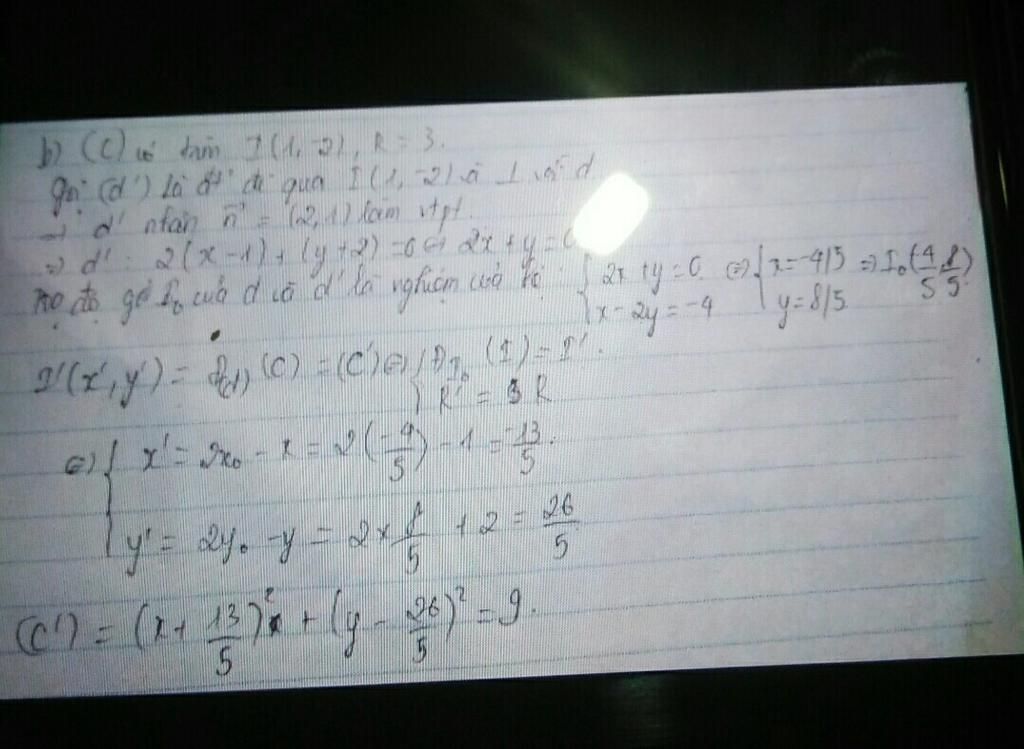 b) (C) có tâm I(1,-2), R = 3.
gọi (d') là đt đi qua I(1,-2) và ⊥ với d
→ d' nhận n⃗ = (2,1) làm vtpt.
=> d': 2(x-1)+(y+2)=0 <=> 2x+y=0
Toạ độ gđ I₀ của d và d' là nghiệm của hệ: { 2x+y=0 <=> { x=-4/5 => I₀(4/5, 8/5)
x-2y=-4 y=8/5
I'(x',y') = Đ(d) (C) = (C') <=> { Đ I₀ (I) = I'.
R' = 3 R
<=> { x' = 2x₀ - x = 2(-4/5) - 1 = -13/5.
y' = 2y₀ - y = 2 × 8/5 + 2 = 26/5
(C') = (x + 13/5)² + (y - 26/5)² = 9.